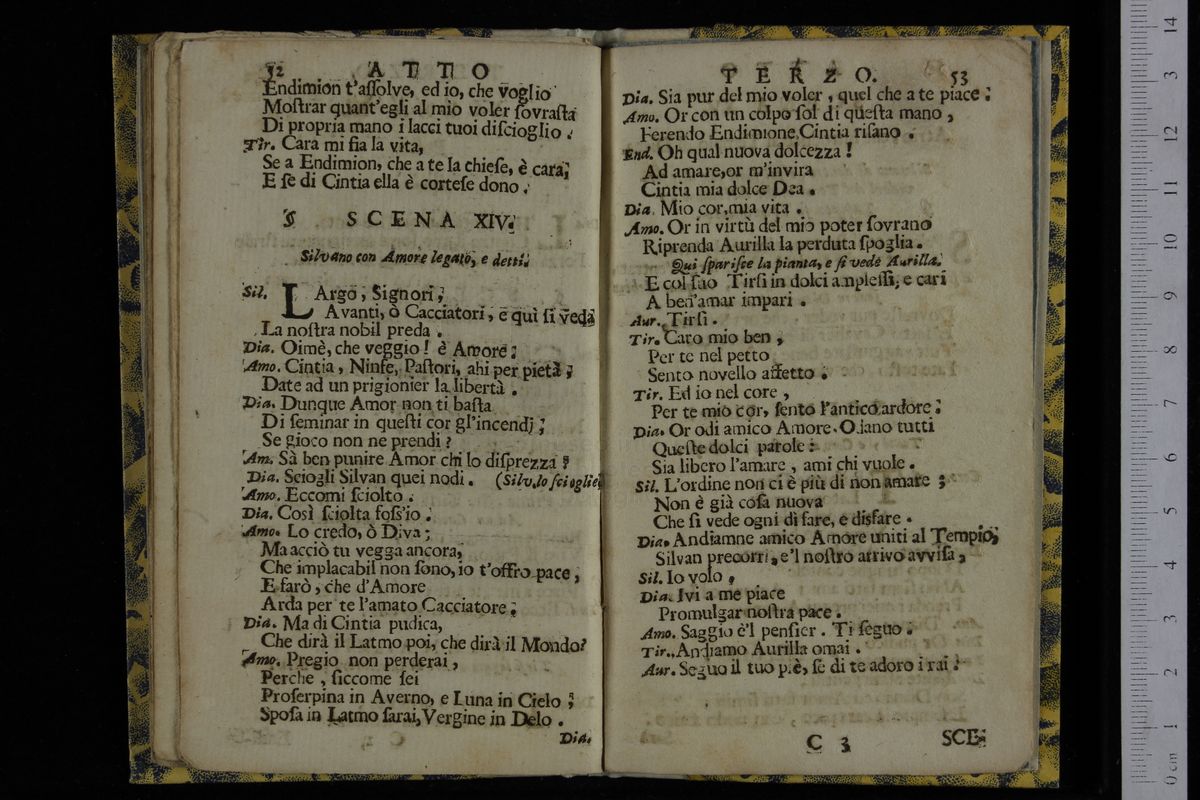 52 ATTO
Endimion t'assolve, ed io, che voglio
Mostrar quant'egli al mio voler sovrasta
Di propria mano i lacci tuoi discioglio.
Tir. Cara mi fia la vita,
Se a Endimion, che a te la chiese, è cara;
E se di Cintia ella è cortese dono.
SCENA XIV.
Silvano con Amore legato, e detti.
Sil. LArgo, Signori,
Avanti, ò Cacciatori, e quì si veda
La nostra nobil preda.
Dia. Oimè, che veggio! è Amore;
Amo. Cintia, Ninfe, Pastori, ahi per pietà;
Date ad un prigionier la libertà.
Dia. Dunque Amor non ti basta
Di seminar in questi cor gl'incendj;
Se gioco non ne prendi?
Am. Sà ben punire Amor chi lo disprezza?
Dia. Sciogli Silvan quei nodi. (Silv. lo scioglie.
Amo. Eccomi sciolto.
Dia. Così sciolta foss'io.
Amo. Lo credo, ò Diva;
Ma acciò tu vegga ancora,
Che implacabil non sono, io t'offro pace;
E farò, che d'Amore
Arda per te l'amato Cacciatore.
Dia. Ma di Cintia pudica,
Che dirà il Latmo poi, che dirà il Mondo?
Amo. Pregio non perderai,
Perche, siccome sei
Proserpina in Averno, e Luna in Cielo;
Sposa in Latmo sarai, Vergine in Delo.
Dia.
TERZO. 53
Dia. Sia pur del mio voler, quel che a te piace.
Amo. Or con un colpo sol di questa mano,
Ferendo Endimione, Cintia risano.
End. Oh qual nuova dolcezza!
Ad amare, or m'invira
Cintia mia dolce Dea.
Dia. Mio cor, mia vita.
Amo. Or in virtù del mio poter sovrano
Riprenda Aurilla la perduta spoglia.
Qui sparisce la pianta, e si vede Aurilla.
E col suo Tirsi in dolci amplessi, e cari
A ben'amar impari.
Aur. Tirsi.
Tir. Caro mio ben,
Per te nel petto
Sento novello affetto.
Tir. Ed io nel core,
Per te mio cor, sento l'antico ardore.
Dia. Or odi amico Amore. Odano tutti
Queste dolci parole:
Sia libero l'amare, ami chi vuole.
Sil. L'ordine non ci è più di non amare;
Non è già cosa nuova
Che si vede ogni dì fare, e disfare.
Dia. Andiamne amico Amore uniti al Tempio,
Silvan precorri, e'l nostro arrivo avvisa,
Sil. Io volo,
Dia. Ivi a me piace
Promulgar nostra pace.
Amo. Saggio è'l pensier. Ti seguo.
Tir. Andiamo Aurilla omai.
Aur. Seguo il tuo piè, se di te adoro i rai.
C 3 SCE-